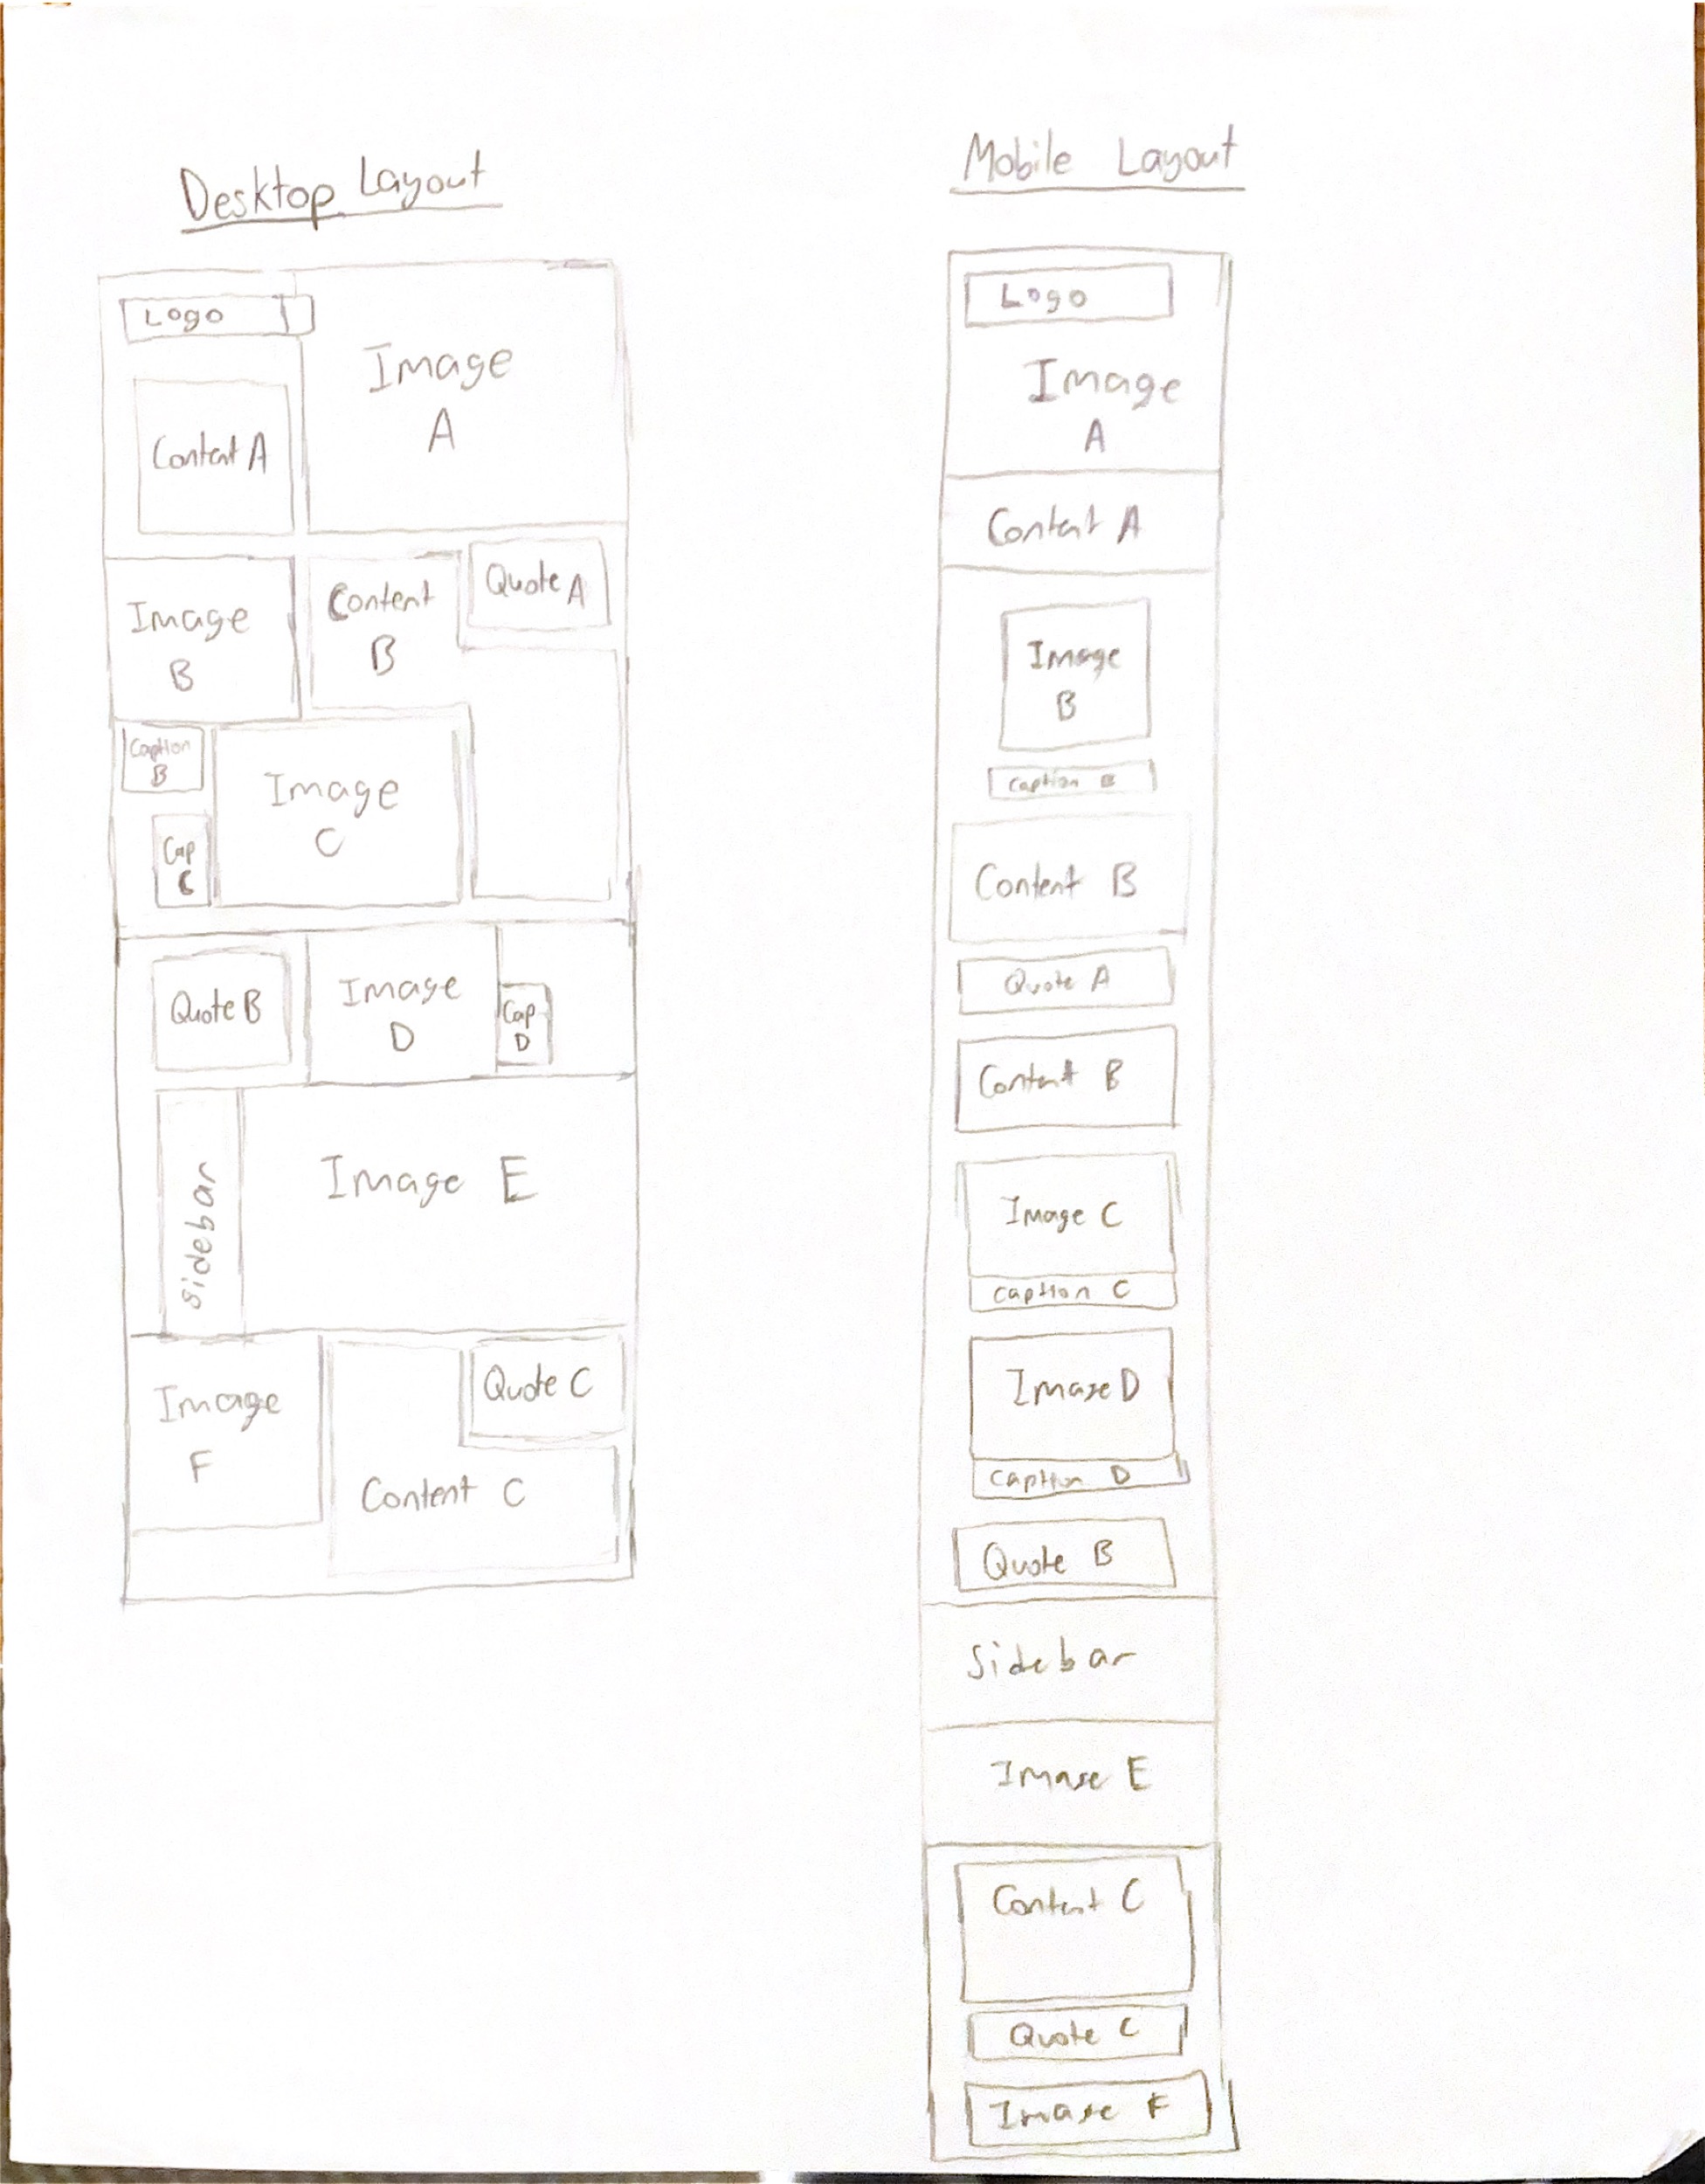 Desktop Layout
Logo
Image
A
Content A
Image
B
Content
B
Quote A
Caption
B
Image
C
Cap
C
Quote B
Image
D
Cap
D
Sidebar
Image E
Image
F
Quote C
Content C
Mobile Layout
Logo
Image
A
Content A
Image
B
Caption B
Content B
Quote A
Content B
Image C
Caption C
Image D
Caption D
Quote B
Sidebar
Image E
Content C
Quote C
Image F